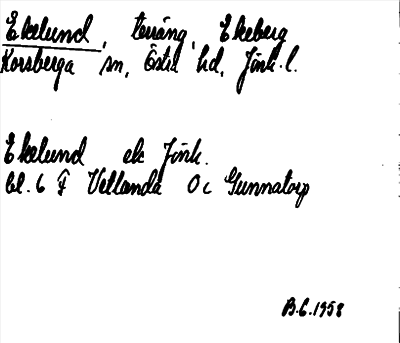 Ekelund, terräng, Ekeberg
Korsberga sn, Östra hd, Jönk. l.
Ekelund ek Jönk.
bl. 6 F Vetlanda O c Gunnatorp
B.C. 1958